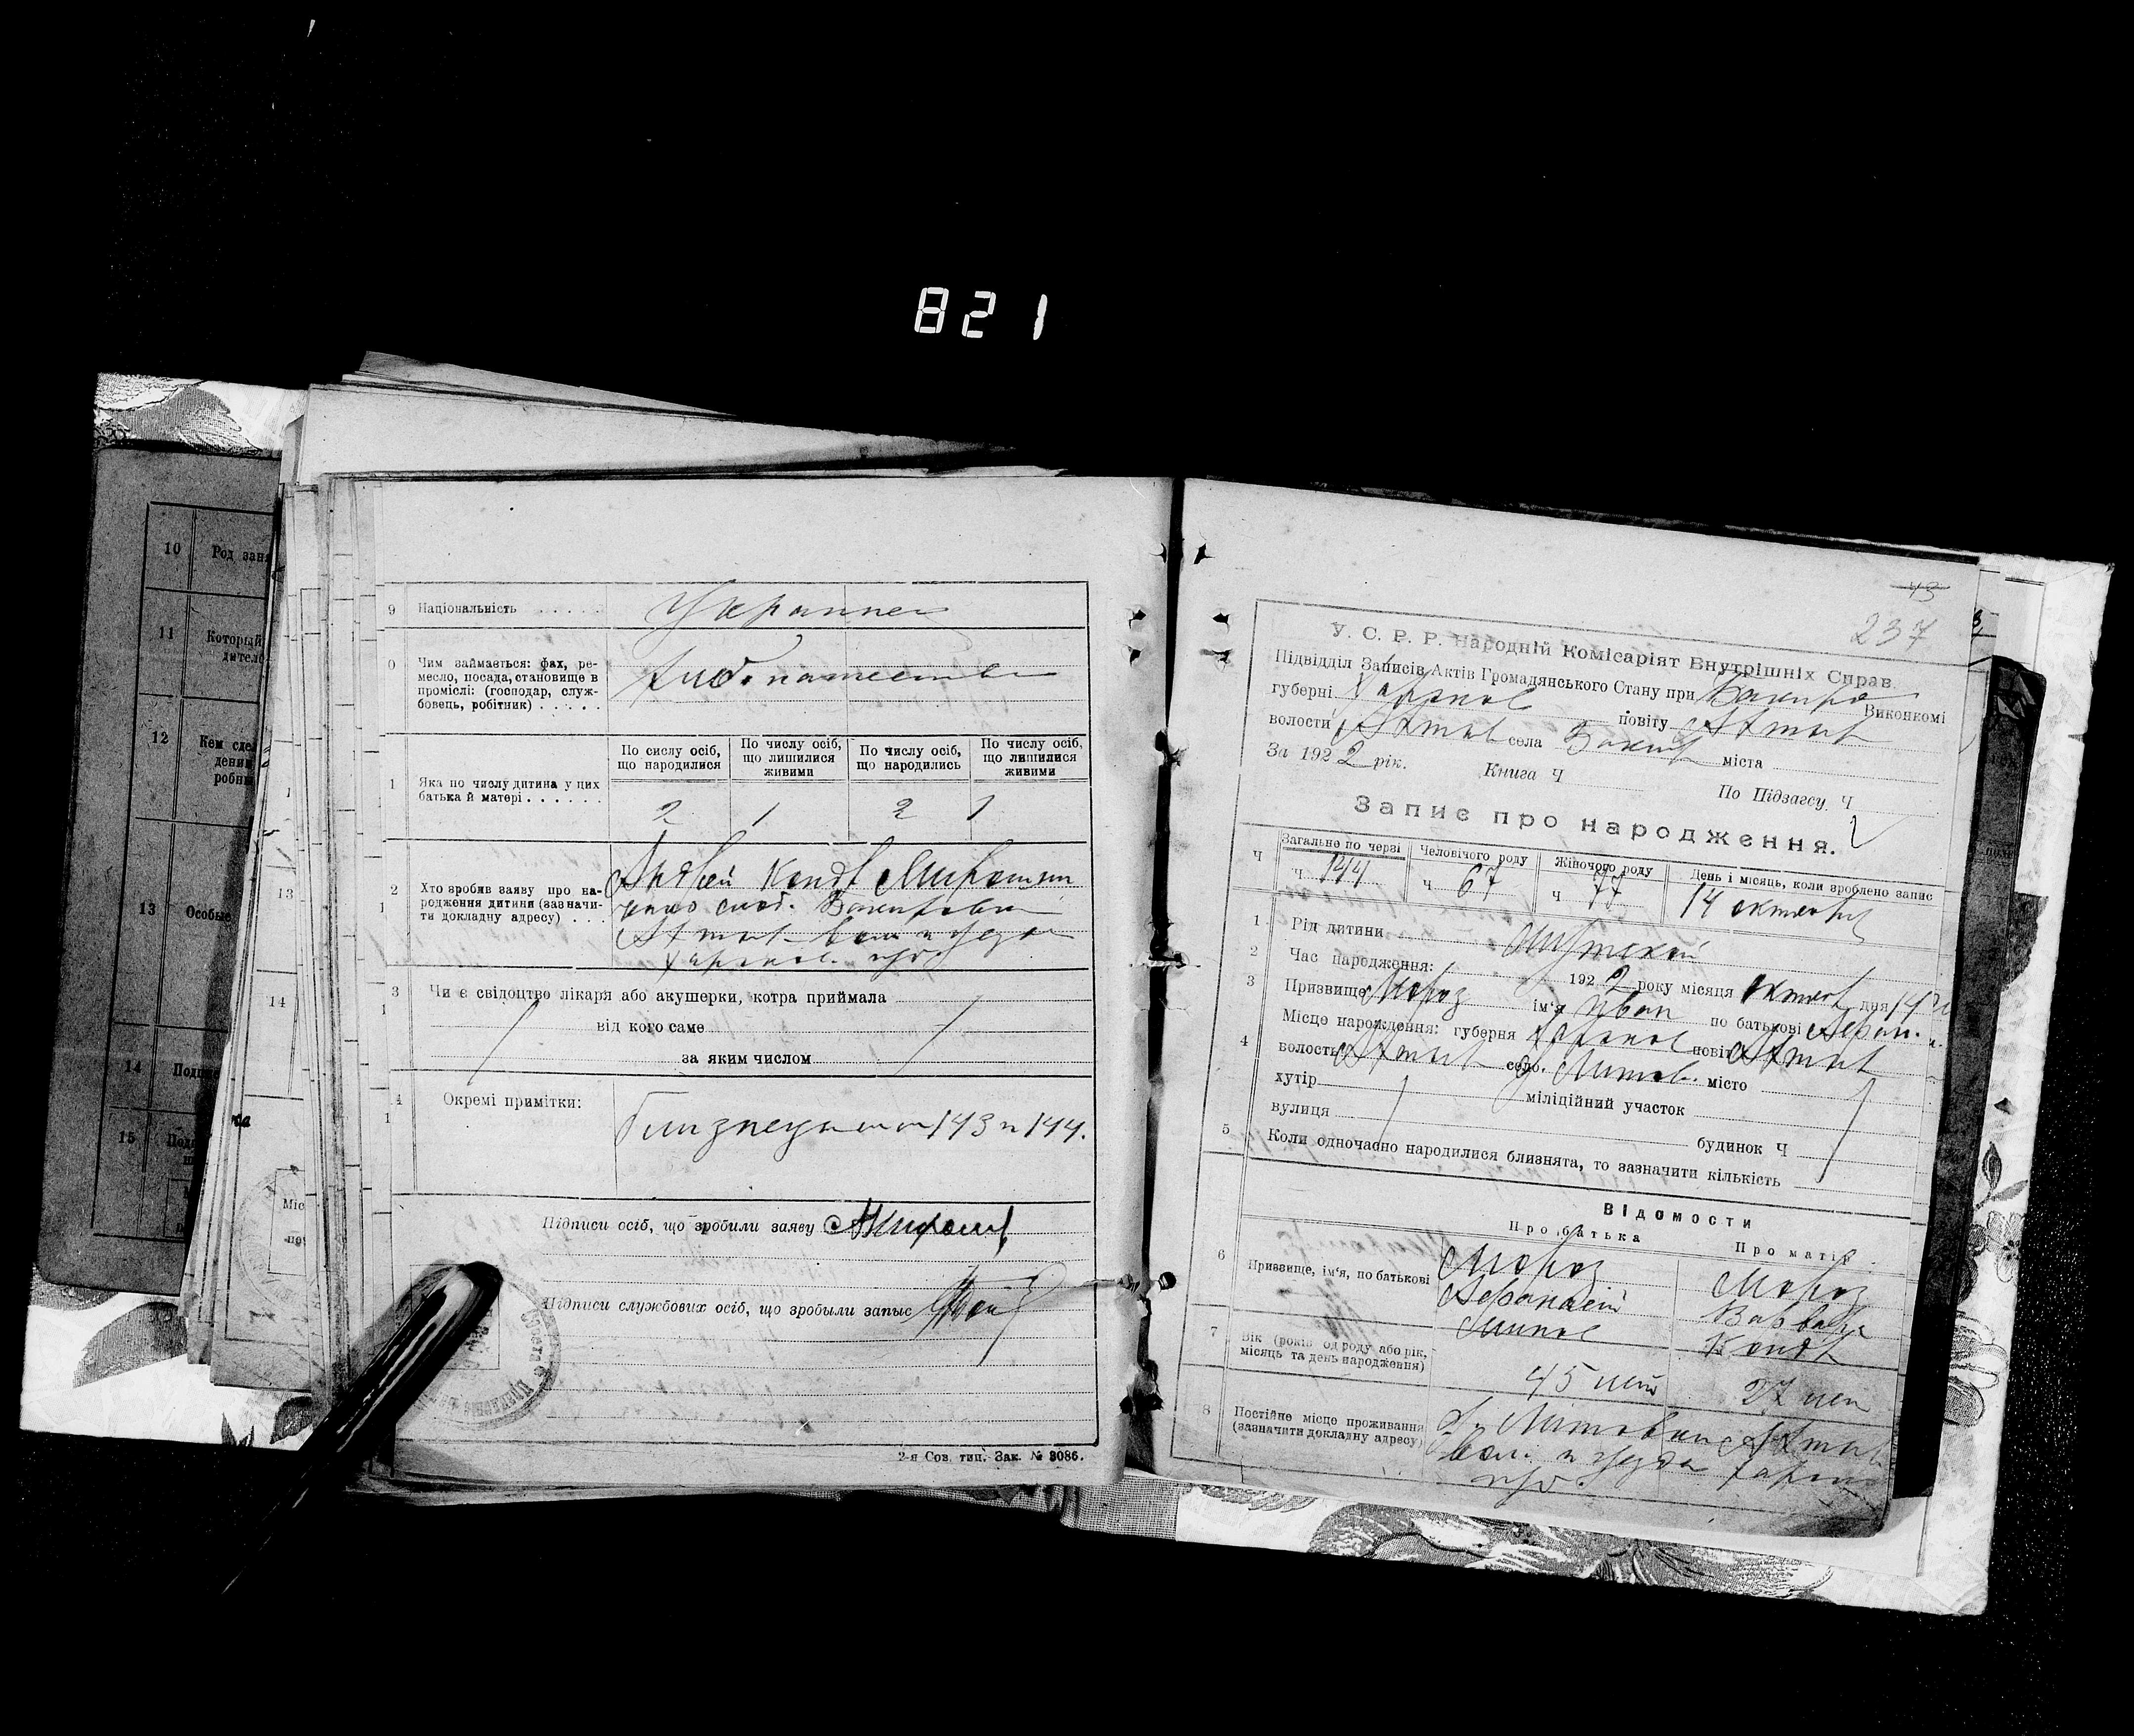 821
10 Род зан
11 Который
дител
12 Кем сде
дени
робны
13 Особые
14 Подпи
15 Подп
13
14
Міс
9 Національність
Украинец
0 Чим займається: фах, ре-
месло, посада, становище в
промислі: (господар, служ-
бовець, робітник)
Хлебопашество
1 Яка по числу дитина у цих
батька й матері
По сислу осіб,
що народилися
По числу осіб,
що лишилися
живими
По числу осіб,
що народились
По числу осіб,
що лишилися
живими
2 1 2 1
2 Хто зробив заяву про на-
родження дитини (зазначи-
ти докладну адресу)
Андрей Конд Мирошни
ченко слоб. Бакировки
Ахтыр вол и уезда
Харьков. губ
3 Чи є свідоцтво лікаря або акушерки, котра приймала
від кого саме
за яким числом
4 Окремі примітки:
близнецы 143 и 144.
Підписи осіб, що зробили заяву
Підписи службових осіб, що зробыли запыс
2-я Сов. тип. Зак. № 3086.
43
237
У. С. Р. Р. Народній Комісаріят Внутрішніх Справ
Підвідділ Записів Актів Громадянського Стану при Бакиро Виконкомі
губерні Харьков повіту Ахтыр
волости Ахтыр села Бакир міста
За 1922 рік. Книга Ч По Підзагсу Ч
Запис про народження.
Ч Загальне по черзі Человічого роду Жіночого роду День і місяць, коли зроблено запис
Ч 144 Ч 67 Ч 77 14 октября
1 Рід дитини Мужской
2 Час народження: 1922 року місяця Октяб дня 14
3 Призвище Мороз ім'я Иван по батькові Афан.
4 Місце народження: губерня Харьков повіт Ахтыр
волость Ахтыр село Литов. місто
хутір міліційний участок
вулиця будинок Ч
5 Коли одночасно народилися близнята, то зазначити кількість
Відомости
Про батька Про матір
6 Призвище, ім'я, по батькові
Мороз Мороз
Афанасий Варвара
Конд
7 Вік (років од роду або рік,
місяць та день народження)
45 лет 27 лет
8 Постійне місце проживання
(зазначити докладну адресу)
Литовки Ахтыр
вол. и уезда Харьк
губ.